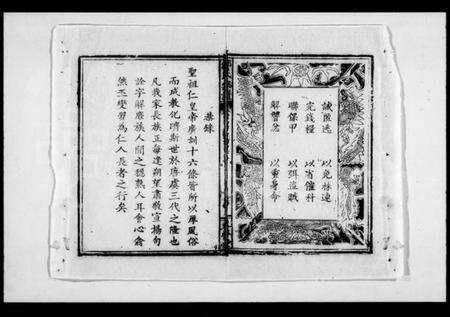 誡匿逃　以免株連
完錢糧　以省催科
聯保甲　以弭盜賊
解讐忿　以重身命
恭錄
聖祖仁皇帝廣訓十六條皆所以厚風俗
而成教化濟斯世於唐虞三代之隆也
凡我家長族正每逢朔望肅敬宣揚句
詮字解庶族人聞之稔熟入耳會心翕
然丕變習為仁人長者之行矣